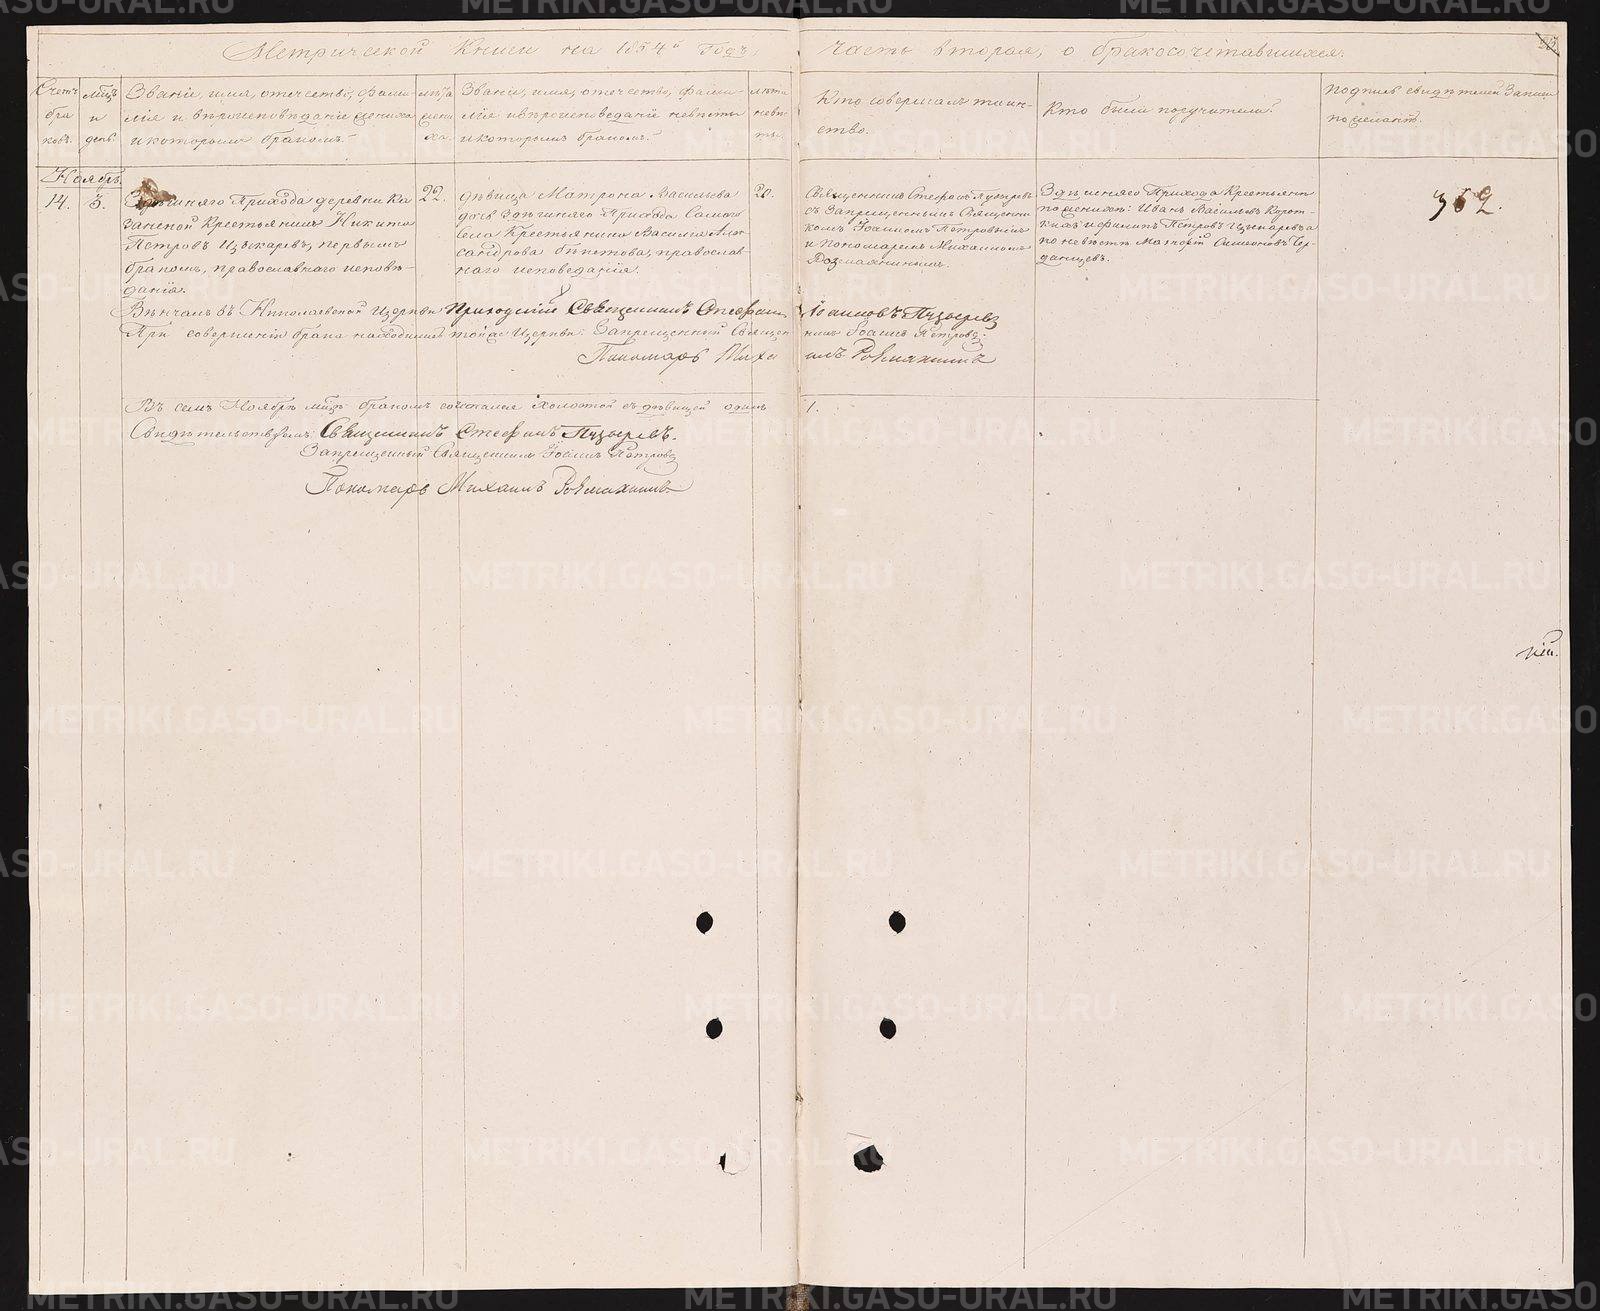 Метрической Книги на 1854й Годъ, часть вторая, о бракосочетавшихся.
Счетъ браковъ.
мцъ и день.
Званіе, имя, отечество, фами-
лія и вѣроисповѣданіе жениха
и которымъ бракомъ.
лѣта жениха.
Званіе, имя, отечество, фами-
лія и вѣроисповеданіе невѣсты
и которымъ бракомъ.
лѣта невѣсты.
Кто совершалъ таин-
ство.
Кто были поручители.
Подпись свидѣтелей Записи
по желанію.
Ноябрь.
14.
5.
Здѣшняго Прихода деревни Ка
занской Крестьянинъ Никита
Петровъ Цыкаревъ, первымъ
бракомъ, православнаго исповѣ-
данія.
22.
дѣвица Матрона Васильева
дочь Здѣшняго Прихода Самаго
Села Крестьянина Василія Алек
сандрова православ-
наго исповеданія.
20.
Священникъ Стефанъ Пузыревъ
съ Запрещеннымъ Священни
комъ Іоанномъ Петровымъ
и Пономаремъ Михаиломъ
Здѣшняго Прихода Крестьяне
по женихѣ: Иванъ Васильевъ Корот-
кихъ и Филипъ Петровъ Цыкаревъ а
по невѣстѣ Матфей Симеоновъ
352.
Вѣнчалъ въ Николаевской Церкви Приходскій Священникъ Стефанъ Іоанновъ Пузыревъ
При совершеніи брака находились тойже Церкви: Запрещенный Священникъ Іоаннъ Петровъ
Пономарь Михаилъ
Въ семъ Ноябрѣ мцѣ бракомъ сочеталея Холостой съ дѣвицей одинъ 1.
Свидѣтельствуемъ: Священникъ Стефанъ Пузыревъ.
Запрещенный Священникъ Іоаннъ Петровъ
Пономарь Михаилъ
METRIKI.GASO-URAL.RU